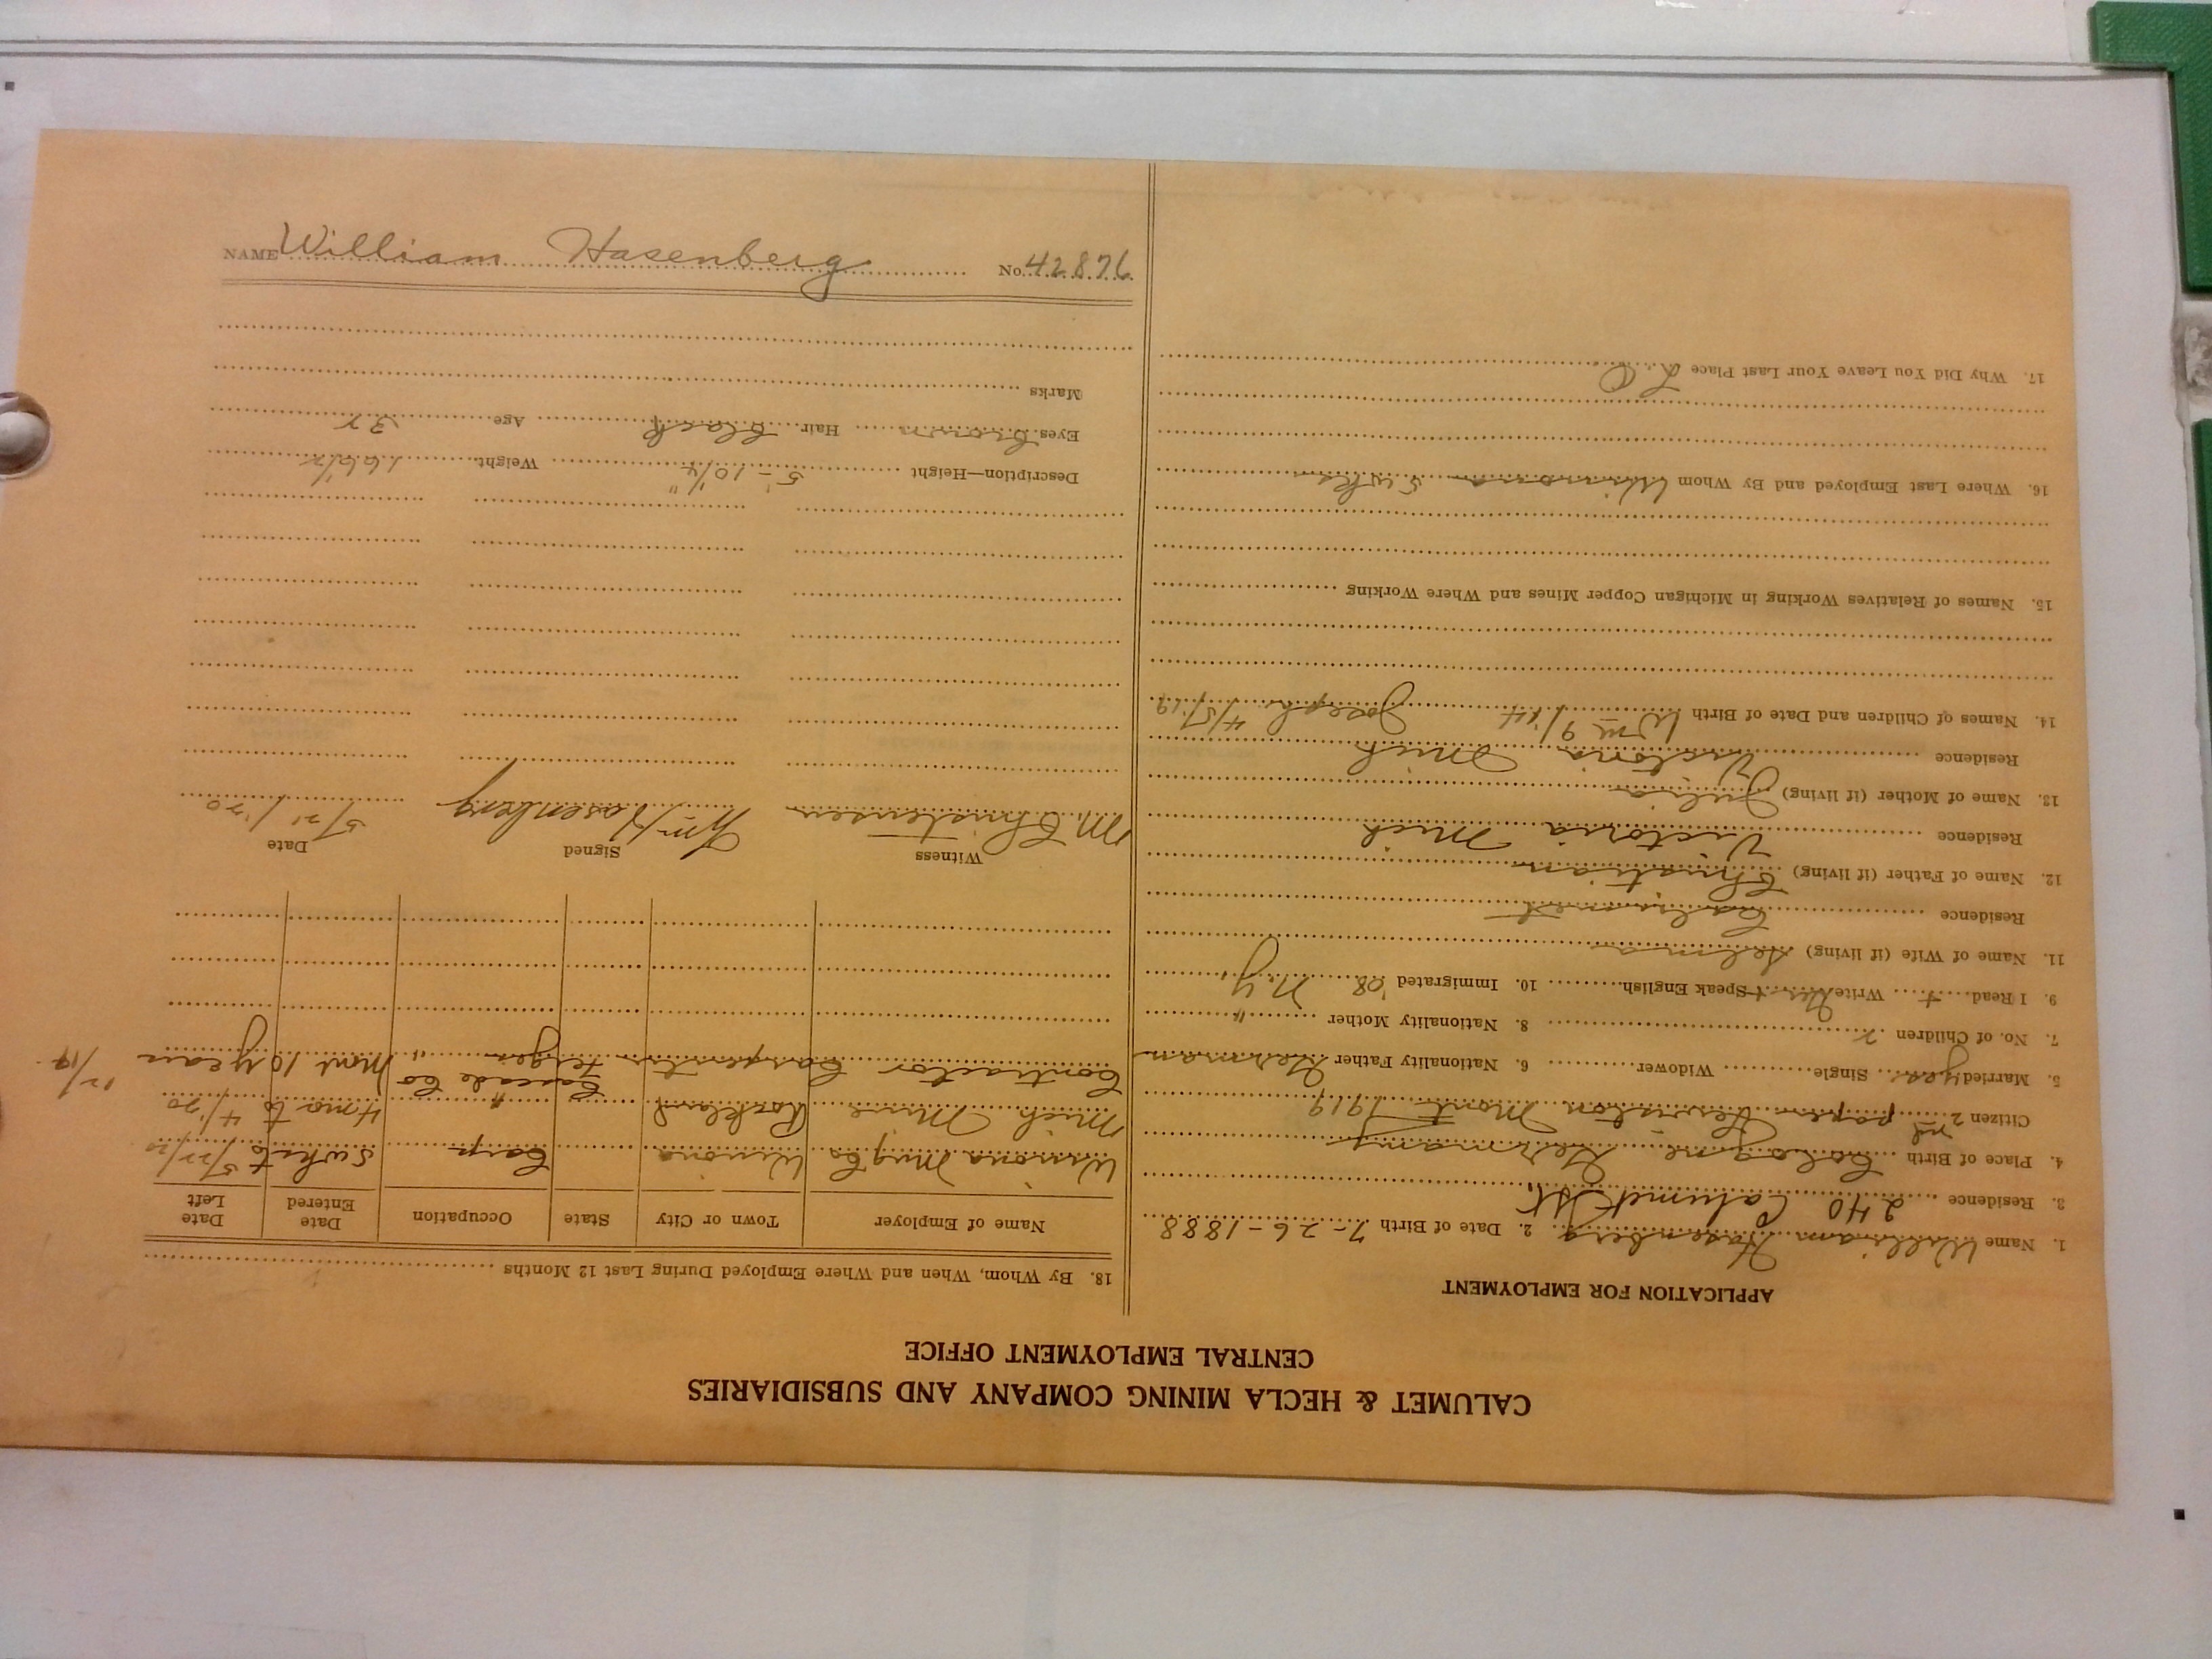 CALUMET & HECLA MINING COMPANY AND SUBSIDIARIES
CENTRAL EMPLOYMENT OFFICE
APPLICATION FOR EMPLOYMENT
1. Name William Hasenberg 2. Date of Birth 7-26-1888
3. Residence 240 Calumet St.
4. Place of Birth Cologne Germany
Citizen 2nd paper Lewiston Mont 1919
5. Married yes Single Widower 6. Nationality Father German
7. No. of Children 2 8. Nationality Mother "
9. I Read + Write Speak English 10. Immigrated '08 N.Y.
11. Name of Wife (if living) Selma
Residence
12. Name of Father (if living) Christian
Residence Victoria Mich
13. Name of Mother (if living) Julia
Residence Victoria Mich
14. Names of Children and Date of Birth Wm 9/'14 Joseph 4/5/'19
15. Names of Relatives Working in Michigan Copper Mines and Where Working
16. Where Last Employed and By Whom Winona 5 wks
17. Why Did You Leave Your Last Place
18. By Whom, When and Where Employed During Last 12 Months
Name of Employer Town or City State Occupation Date Entered Date Left
Winona Mng Co Winona Carp 5 wks to 5/22/20
Mich Mine Rockland " 4 mo to 4/'20
Contractor Carpenter Fergus Cascade Co " Mont 10 years 12/19
Witness Signed Date
M. Christensen Wm Hasenberg 5/21/'20
Description—Height 5'-10 1/4" Weight 166 1/2
Eyes brown Hair black Age 32
Marks
NAME William Hasenberg No. 42876